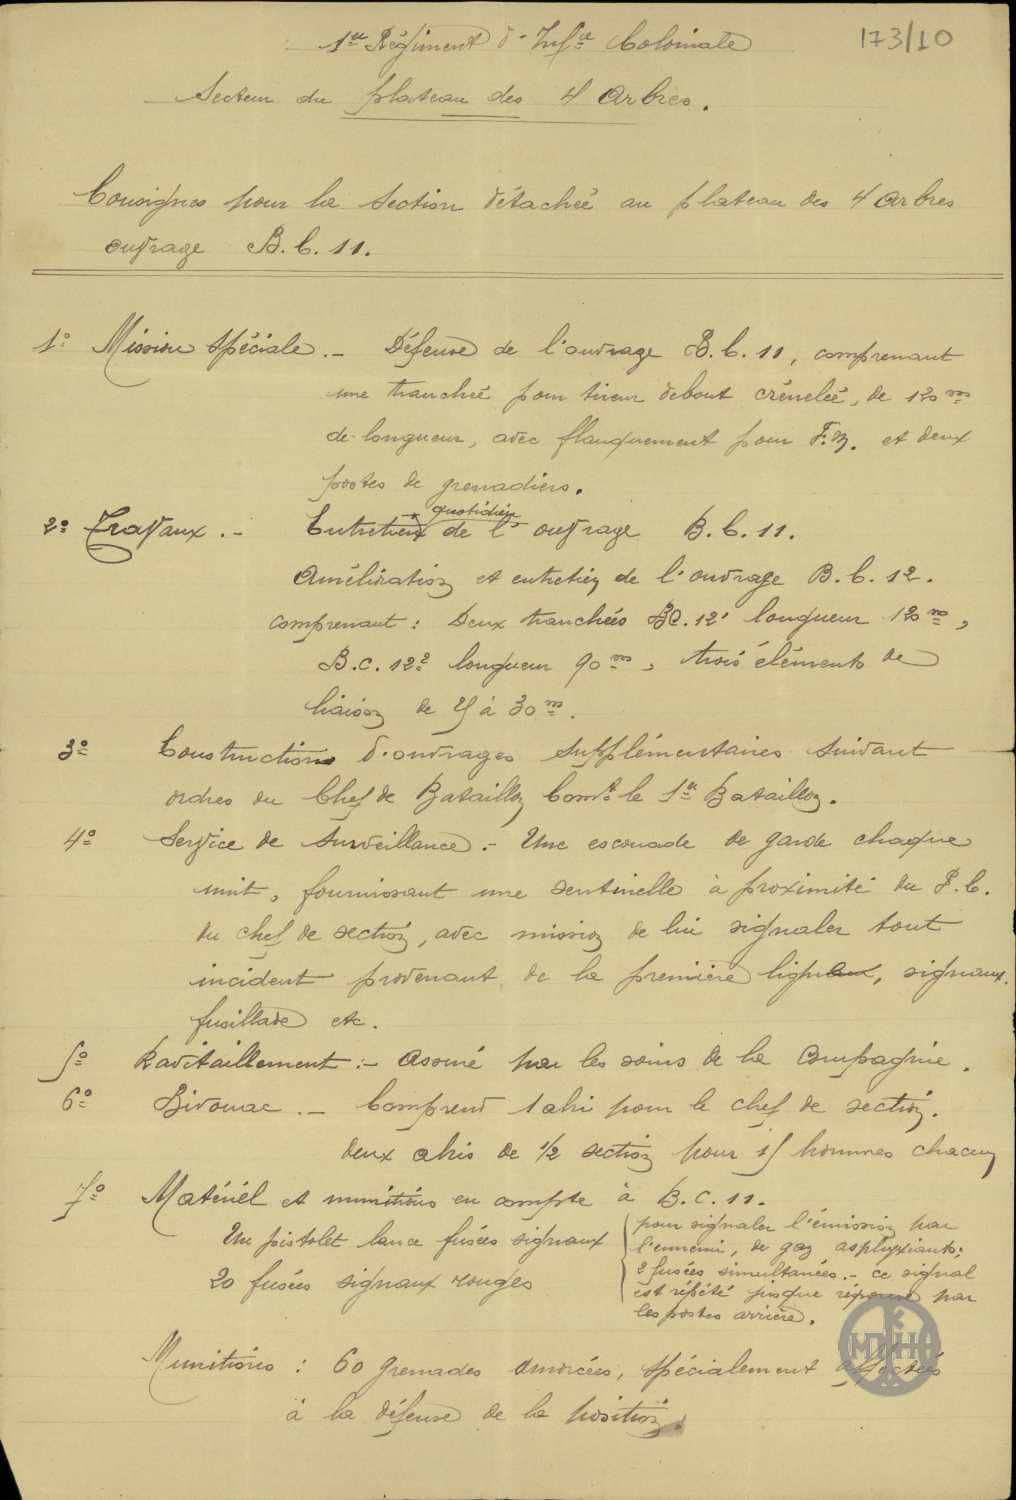 173/10
1er Régiment d'Infie Coloniale
Secteur du plateau des 4 Arbres.
Consignes pour la Section détachée au plateau des 4 Arbres
ouvrage B.C. 11.
1° Mission Spéciale. - Défense de l'ouvrage B.C. 11, comprenant
une tranchée pour tireur debout crénelée, de 120 m
de longueur, avec flanquement pour F.M. et deux
postes de grenadiers.
2° Travaux. - Entretien quotidien de l'ouvrage B.C. 11.
Amélioration et entretien de l'ouvrage B.C. 12.
comprenant : Deux tranchées BC. 12' longueur 120 m,
B.C. 12² longueur 90 m, trois éléments de
liaison de 25 à 30 m.
3° Constructions d'ouvrages supplémentaires suivant
ordres du Chef de Bataillon Comdt le 1er Bataillon.
4° Service de surveillance. - Une escouade de garde chaque
nuit, fournissant une sentinelle à proximité du P.C.
du chef de section, avec mission de lui signaler tout
incident provenant de la première ligne, signaux,
fusillade etc.
5° Ravitaillement : - Assuré par les soins de la Compagnie.
6° Bivouac. - Comprend 1 abri pour le chef de section.
deux abris de 1/2 section pour 15 hommes chacun
7° Matériel et munitions en compte à B.C. 11.
Un pistolet lance fusées signaux
20 fusées signaux rouges
pour signaler l'émission par
l'ennemi, de gaz asphyxiants:
2 fusées simultanées. - ce signal
est répété jusque réponse par
les postes arrière.
Munitions : 60 grenades amorcées, spécialement affectées
à la défense de la position.